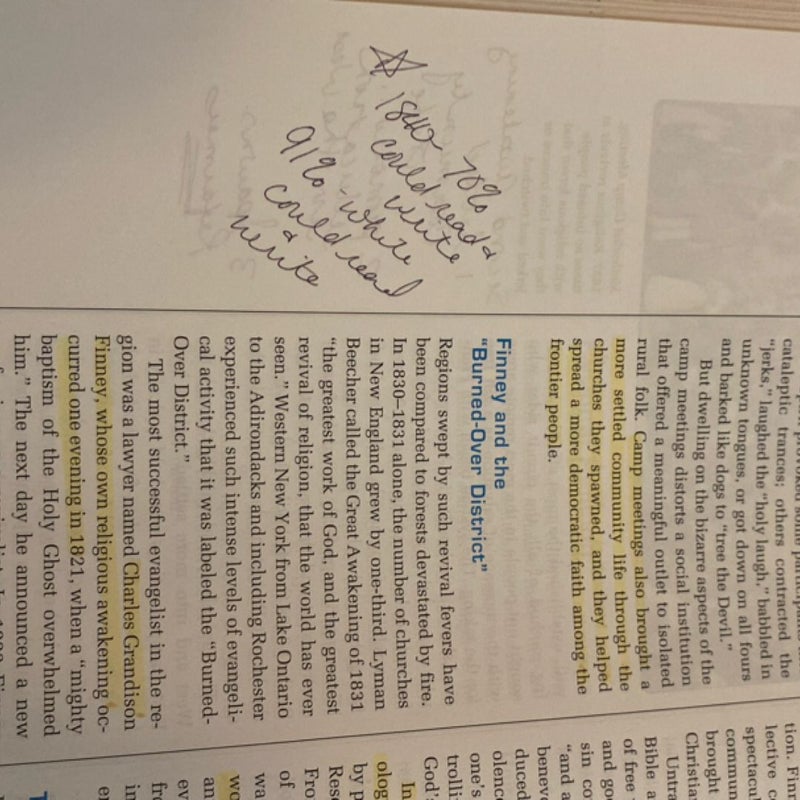 ☆ 1840 78%
could read &
write
91% - white
could read
&
write
cataleptic trances; others contracted the
"jerks," laughed the "holy laugh," babbled in
unknown tongues, or got down on all fours
and barked like dogs to "tree the Devil."
But dwelling on the bizarre aspects of the
camp meetings distorts a social institution
that offered a meaningful outlet to isolated
rural folk. Camp meetings also brought a
more settled community life through the
churches they spawned, and they helped
spread a more democratic faith among the
frontier people.
Finney and the
"Burned-Over District"
Regions swept by such revival fevers have
been compared to forests devastated by fire.
In 1830–1831 alone, the number of churches
in New England grew by one-third. Lyman
Beecher called the Great Awakening of 1831
"the greatest work of God, and the greatest
revival of religion, that the world has ever
seen." Western New York from Lake Ontario
to the Adirondacks and including Rochester
experienced such intense levels of evangeli-
cal activity that it was labeled the "Burned-
Over District."
The most successful evangelist in the re-
gion was a lawyer named Charles Grandison
Finney, whose own religious awakening oc-
curred one evening in 1821, when a "mighty
baptism of the Holy Ghost overwhelmed
him." The next day he announced a new
tion. Finn
lective c
spectacu
commun
brought
Christia
Untra
Bible a
of free
and go
sin co
"and a
benev
duced
olenc
one's
trolli
God's
In
olog
by p
Rese
Fro
of
wa
wo
an
ev
fr
in
er
T